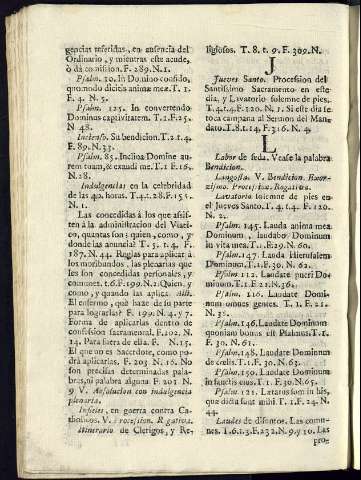 gencias referidas, en ausencia del
Ordinario, y mientras este acude,
ò dà comission. F. 289. N. 1.
Psalm. 30. In Domino confido,
quomodo dicitis animæ meæ. T. 1.
F. 4. N. 5.
Psalm. 125. In convertendo
Dominus captivitatem. T. 1. F. 25.
N. 48.
Incienso. Su bendicion. T. 2. t. 4.
F. 89. N. 33.
Psalm. 85. Inclina Domine au-
rem tuam, & exaudi me. T. 1. F. 16.
N. 28.
Indulgencias en la celebridad
de las 40. horas. T. 4. t. 28. F. 155.
N. 1.
Las concedidas à los que assis-
ten à la administracion del Viati-
co, quantas son: quien, como, y
donde las anuncia? T. 5. t. 4. F.
187. N. 44. Reglas para aplicar à
los moribundos, las plenarias que
les son concedidas personales, y
comunes. t. 6. F. 199. N. 2. Quien, y
como, y quando las aplica. Alli.
El enfermo, què harà de su parte
para lograrlas? F. 199. N. 4. y 7.
Forma de aplicarlas dentro de
confission sacramental. F. 202. N.
14. Para fuera de ella. F. N. 15.
El que no es Sacerdote, como po-
drà aplicarlas. F. 203. N. 16. No
son precisas determinadas pala-
bras, ni palabra alguna. F. 201. N.
9 V. Absolucion con indulgencia
plenaria.
Infieles, en guerra contra Ca-
tholicos. V. Procession. Rogativa.
Itinerario de Clerigos, y Re-
ligiosos. T. 8. t. 9. F. 309. N.
J
Jueves Santo. Procession del
Santissimo Sacramento en este
dia, y Lavatorio solemne de pies.
T. 4. t. 4. F. 120. N. 1. Si este dia se
toca campana al Sermon del Man-
dato. T. 8. t. 14. F. 316. N. 4.
L
Labor de seda. Vease la palabra
Bendicion.
Langosta. V. Bendicion. Exor-
zismo. Procession. Rogativa.
Lavatorio solemne de pies en
el Jueves Santo. T. 4. t. 4. F. 120.
N. 2.
Psalm. 145. Lauda anima mea
Dominum, laudabo Dominum
in vita mea. T. 1. F. 29. N. 60.
Psalm. 147. Lauda Hierusalem
Dominum. T. 1. F. 30. N. 62.
Psalm. 112. Laudate pueri Do-
minum. T. 1. F. 21. N. 36.
Psalm. 116. Laudate Domi-
num omnes gentes. T. 1. F. 21.
N. 38.
Psalm. 146. Laudate Dominum
quoniam bonus est Psalmus. T. 1.
F. 30. N. 61.
Psalm. 148. Laudate Dominum
de cœlis. T. 1. F. 30. N. 63.
Psalm. 150. Laudate Dominum
in sanctis eius. T. 1. F. 30. N. 65.
Psalm. 121. Lætatus sum in his,
quæ dicta sunt mihi. T. 1. F. 24. N.
44.
Laudes de difuntos. Las comu-
nes. T. 6. t. 3. F. 232. N. 9. y 10. Las
pro-